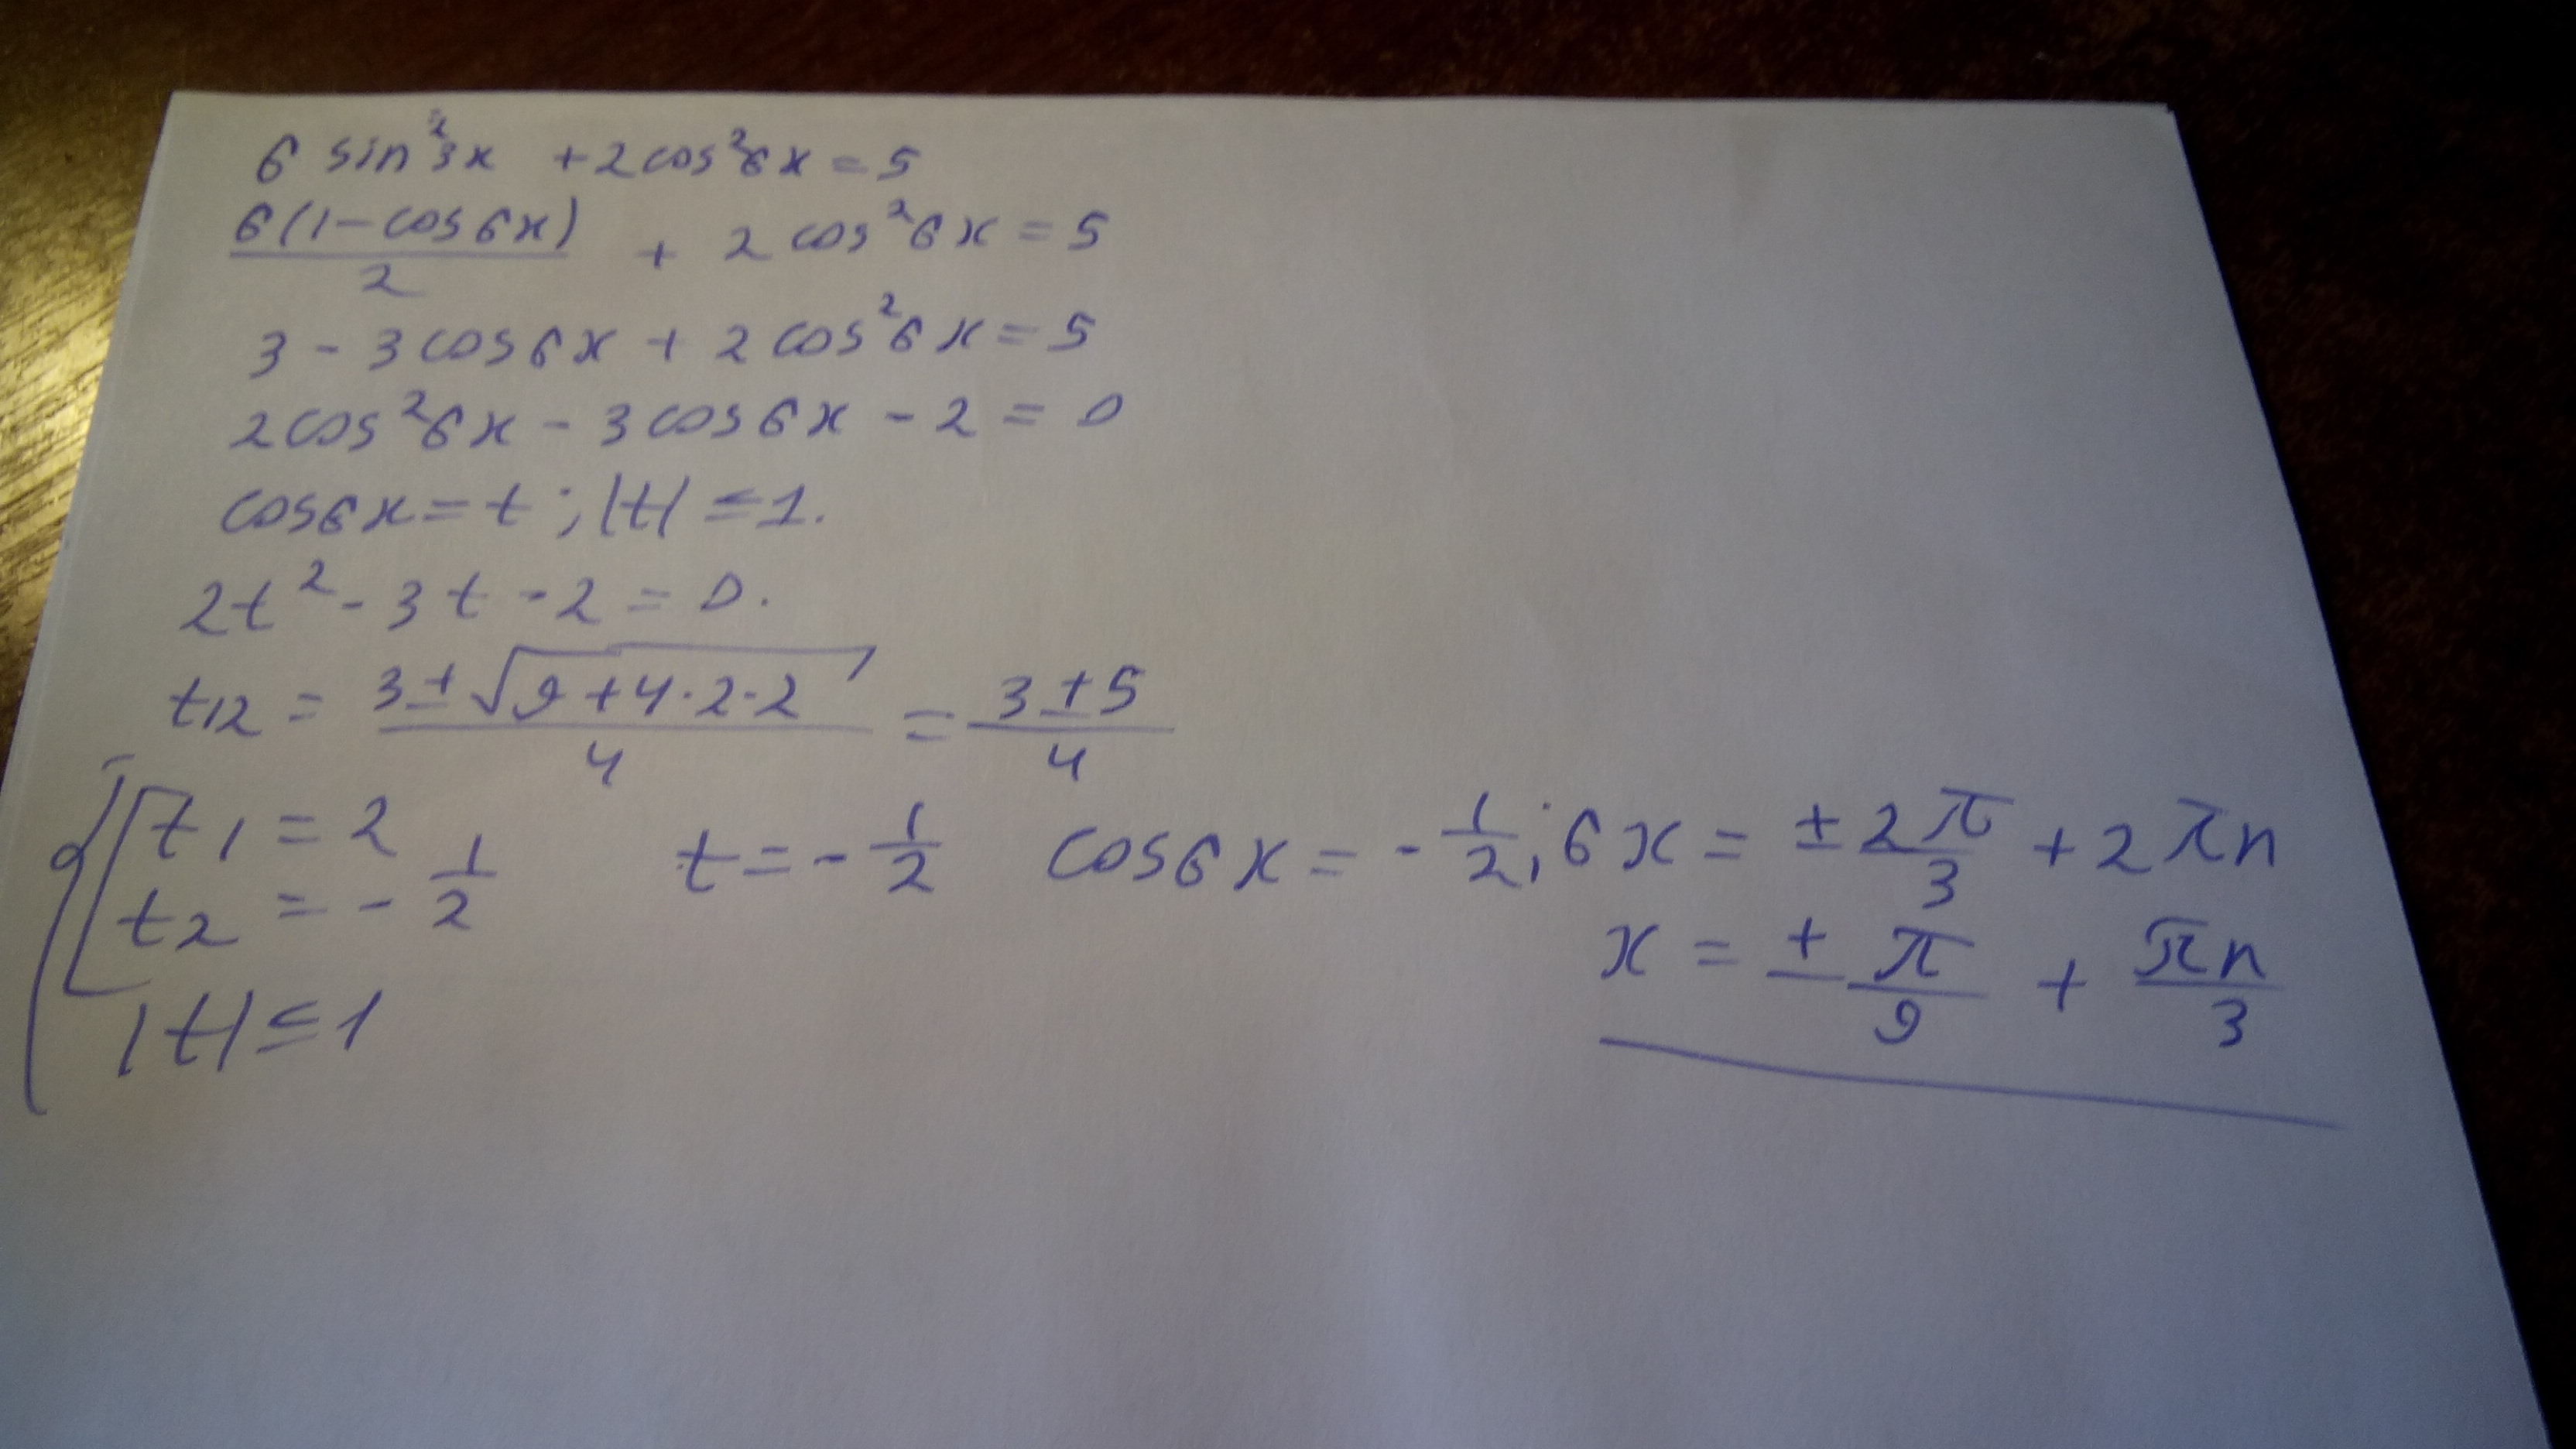 6 sin²3x + 2cos²6x = 5
6(1-cos6x)/2 + 2cos²6x = 5
3 - 3cos6x + 2cos²6x = 5
2cos²6x - 3cos6x - 2 = 0
cos6x = t; |t| ≤ 1.
2t² - 3t - 2 = 0.
t12 = (3 ± √(9+4·2·2))/4 = (3 ± 5)/4
t1 = 2
t2 = -1/2
|t| ≤ 1
t = -1/2 cos6x = -1/2; 6x = ± 2π/3 + 2πn
x = ± π/9 + πn/3